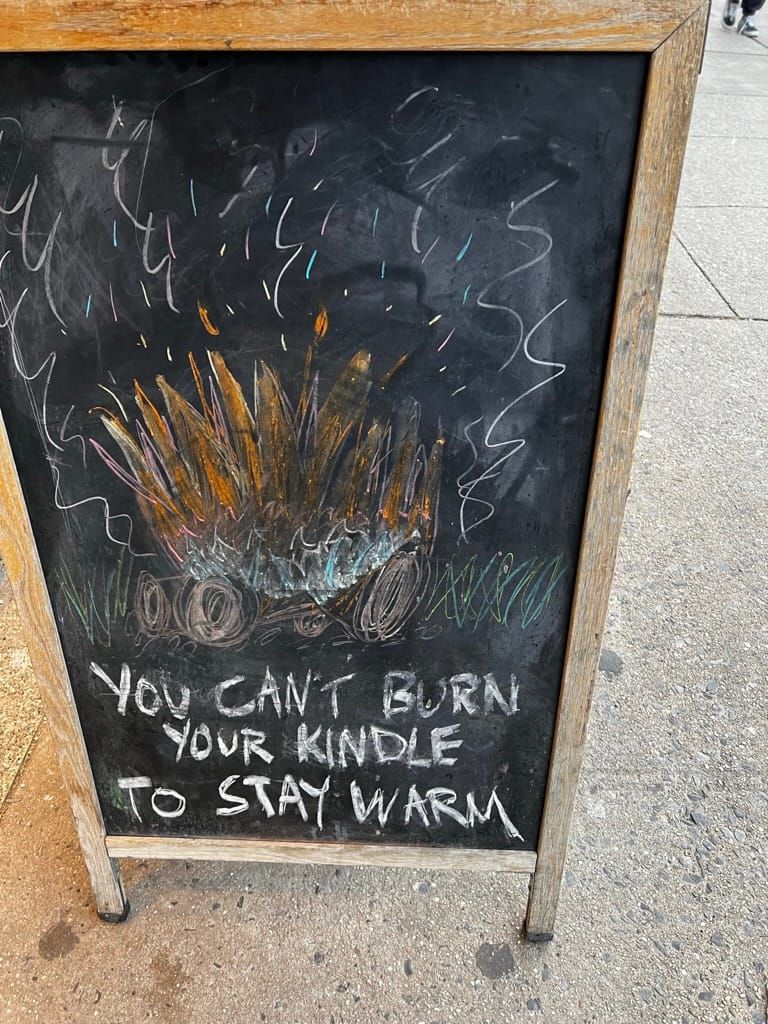 YOU CAN'T BURN
YOUR KINDLE
TO STAY WARM